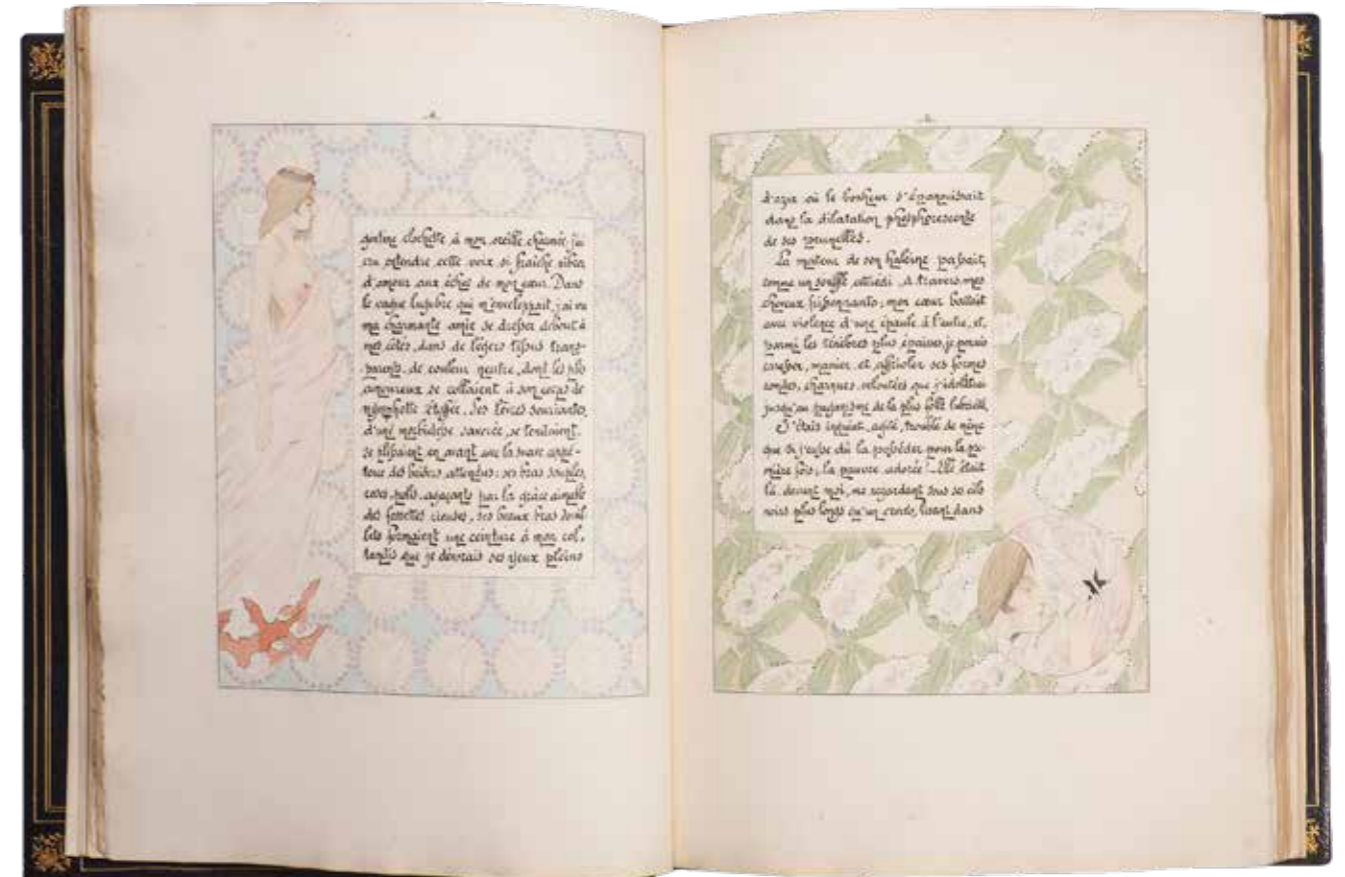 -4-
gentine clochette à mon oreille charmée j'ai
cru entendre cette voix si fraîche vibrer
d'amour aux échos de mon cœur. Dans
le vague lugubre qui m'enveloppait, j'ai vu
ma charmante amie se dresser debout à
mes côtés, dans de légers tissus trans-
parents, de couleur neutre, dont les plis
amoureux se collaient à son corps de
nymphette étoffée. Ses lèvres souriantes,
d'une morbidesse sacrée, se tendaient,
se plissaient en avant avec la suave appé-
tence des baisers attendus; ses bras souples,
rosés, polis, agaçants par la grâce aimable
des fossettes rieuses, ses beaux bras
formaient une ceinture à mon col,
tandis que je dévorais ses yeux pleins
-5-
d'azur où le bonheur s'épanouissait
dans la dilatation phosphorescente
de ses prunelles.
La moiteur de son haleine passait,
comme un souffle attiédi, à travers mes
cheveux frissonnants; mon cœur battait
avec violence d'une épaule à l'autre, et,
parmi les ténèbres plus épaisses, je pouvais
caresser, manier et affrioler ses formes
rondes, charnues, veloutées que j'idolâtrai
jusqu'au paganisme de la plus belle lubricité.
J'étais inquiet, agité, troublé de même
que si j'eusse dû la posséder pour la pre-
mière fois; la pauvre adorée!.. Elle était
là devant moi, me regardant sous ses cils
noirs plus longs qu'un lisant dans